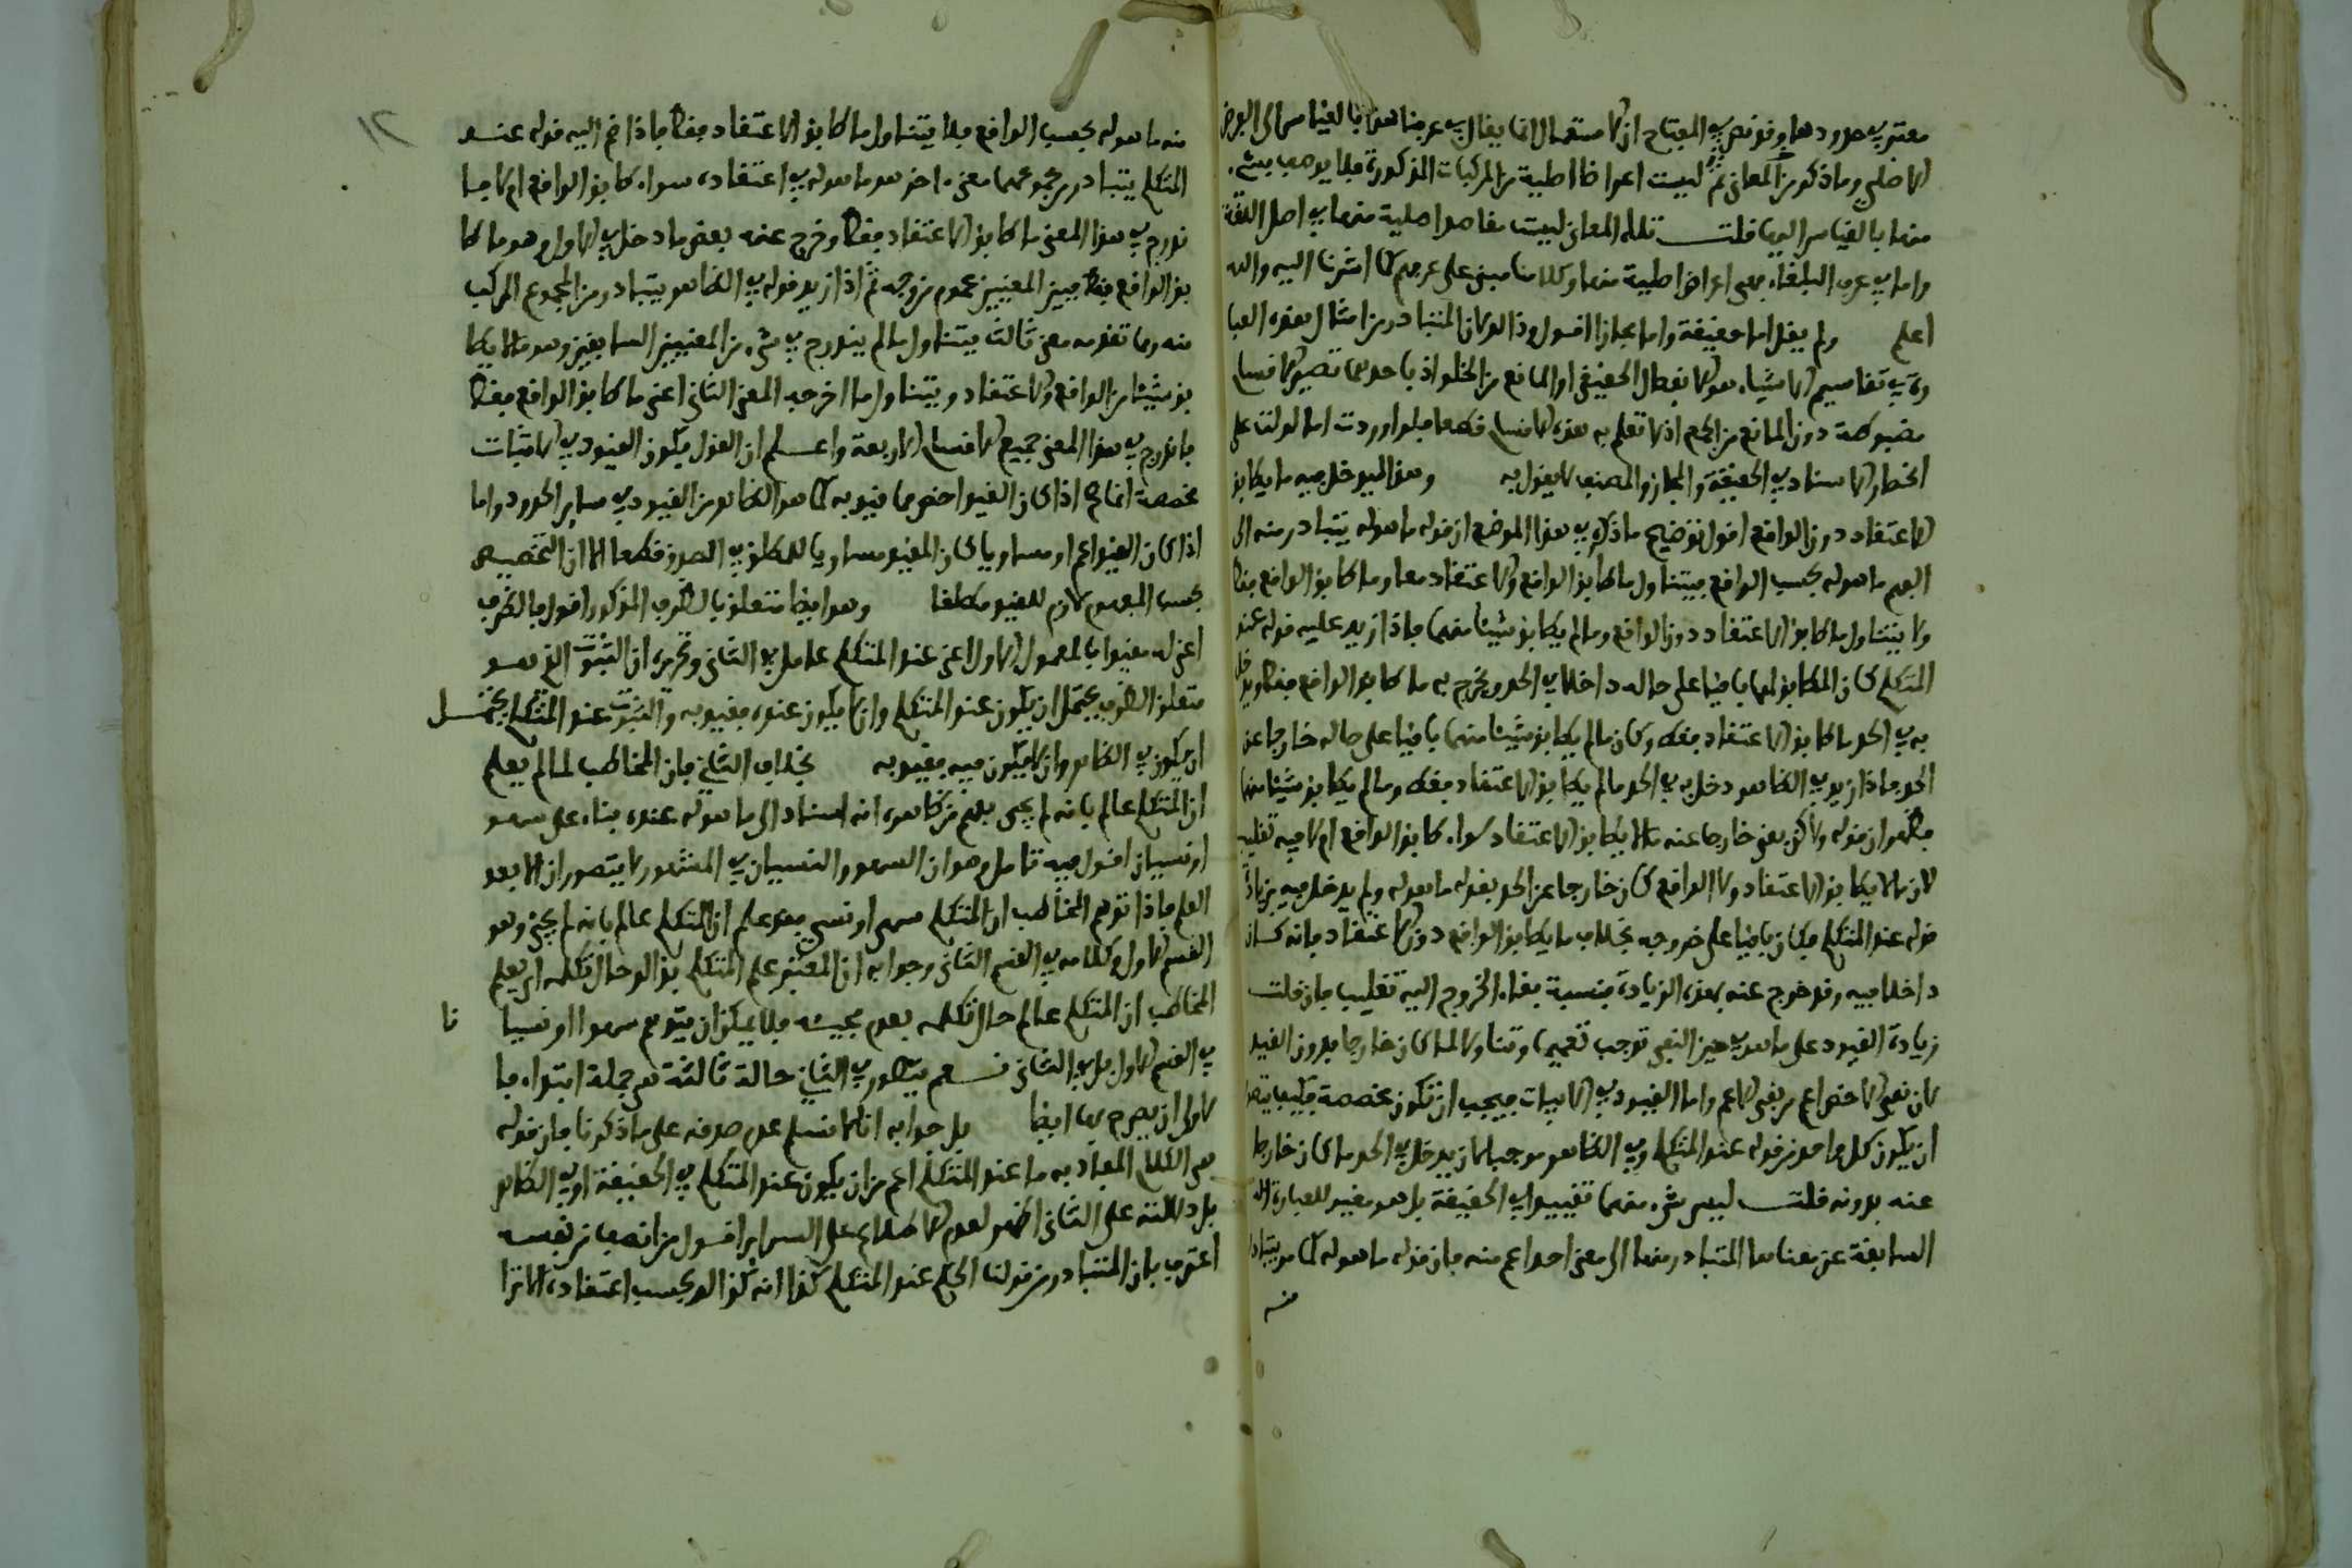 معتبر في حدودها وقد نص في المفتاح ان الاستعمال انما يقال في عرفنا هذا بالقياس الى الغرض
الاصلي وما ذكر من المعاني ليست اغراضا اصلية من المركبات المذكورة فلا يوصف بشيء
منها بالقياس اليها قلت تلك المعاني ليست مقاصد اصلية منها في اصل اللغة
واما في عرف البلغاء فهي اغراض اصلية منها وكلامنا مبني على عرفهم كما اشرنا اليه والله
اعلم ولم يقل اما حقيقة واما مجازا اقول وذلك لان المتبادر من امثال هذه العبا
رة في تقاسيم الاشياء هو الانفصال الحقيقي او المانع من الخلو اذ باحدهما تصير الاقسام
مضبوطة دون المانع من الجمع اذ لا تعلم به هذه الاقسام قطعا فلو اوردت اما لدلت على
انحصار الاسناد في الحقيقة والمجاز والمصنف لا يقول به وهذا ليدخل فيه ما يطابق
الاعتقاد دون الواقع اقول توضيح ما ذكره في هذا الموضع ان قوله ما هو له يتبادر منه الى
الفهم ما هو له بحسب الواقع فيتناول ما طابق الواقع والاعتقاد معا وما طابق الواقع فقط
ولا يتناول ما طابق الاعتقاد دون الواقع وما لم يطابق شيئا منهما فاذا زيد عليه قوله عند
المتكلم كان المطابق لهما باقيا على حاله داخلا في الحد ويخرج به ما طابق الواقع فقط ويدخل
به في الحد ما طابق الاعتقاد فقط وكان ما لم يطابق شيئا منهما باقيا على حاله خارجا عن
الحد فاذا زيد في الظاهر دخل به في الحد ما لم يطابق الاعتقاد فقط وما لم يطابق شيئا منهما
فظهر ان قوله ولاكن بقي خارجا عنه ما لا يطابق الاعتقاد سواء طابق الواقع ام لا فيه تغليب
لان ما لا يطابق الاعتقاد ولا الواقع كان خارجا عن الحد بقوله ما هو له ولم يدخل فيه بزيادة
قوله عند المتكلم فكان باقيا على خروجه بخلاف ما يطابق الواقع دون الاعتقاد فانه كان
داخلا فيه وقد خرج عنه بهذه الزيادة فنسبة بقاء الخروج اليه تغليب فان قلت
زيادة القيود على ما هو في حيز النفي توجب تعميما وتناولا لما كان خارجا بدون القيد
لان نفي الاخص اعم من نفي الاعم واما القيود في الاثبات فيجب ان تكون مخصصة فكيف يتصور
ان يكون كل واحد من قوله عند المتكلم وفي الظاهر موجبا لان يدخل في الحد ما كان خارجا
عنه بدونه قلت ليس شيء منهما تقييدا في الحقيقة بل هو مغير للعبارة
السابقة عن معناها المتبادر منها الى معنى اخر اعم منه فان قوله ما هو له كما مر يتبادر
منه
١٢
منه ما هو له بحسب الواقع فلا يتناول ما طابق الاعتقاد فقط فاذا ضم اليه قوله عند
المتكلم يتبادر من مجموعهما معنى اخر هو ما هو له في اعتقاده سواء طابق الواقع ام لا فا
ندرج في هذا المعنى ما طابق الاعتقاد فقط وخرج عنه بعض ما دخل في الاول وهو ما طا
بق الواقع فقط فبين المعنيين عموم من وجه ثم اذا زيد قوله في الظاهر يتبادر من المجموع المركب
منه ومما تقدمه معنى ثالث يتناول ما لم يندرج في شيء من المعنيين السابقين وهو ما لا يطا
بق شيئا من الواقع والاعتقاد ويتناول ما اخرجه المعنى الثاني اعني ما طابق الواقع فقط
فاندرج في هذا المعنى جميع الاقسام الاربعة واعلم ان القول بكون القيود في الاثبات
مخصصة انما هو اذا كان القيد اخص مما قيد به كما هو الظاهر من القيود في سائر الحدود واما
اذا كان القيد اعم او مساويا كان المقيد مساويا للمطلق في الصدق قطعا الا ان التخصيص
بحسب المفهوم لازم للقيد مطلقا وهو ايضا متعلق بالظرف المذكور اقول فالظرف
اعني له مقيدا بالمعمول الاول اعني عند المتكلم عامل في الثاني وتحريره ان الثبوت الذي هو
متعلق الظرف يحتمل ان يكون عند المتكلم وان لا يكون عنده فقيد به والثبوت عند المتكلم يحتمل
ان يكون في الظاهر وان لا يكون فيه فقيد به بخلاف الثاني فان المخاطب لما لم يعلم
ان المتكلم عالم بانه لم يجئ فهم من ظاهره انه اسناد الى ما هو له عنده بناء على سهو
او نسيان اقول فيه تامل وهو ان السهو والنسيان في المشهور لا يتصوران الا بعد
العلم فاذا توهم المخاطب ان المتكلم سهى او نسي فقد علم ان المتكلم عالم بانه لم يجئ وهو
القسم الاول وكلامه في القسم الثاني وجوابه ان المعتبر علم المتكلم بذلك حال تكلمه اي يعلم
المخاطب ان المتكلم عالم حال تكلمه بعدم مجيئه فلا يمكن ان يتوهم سهوا او نسيا نا
في القسم الاول بل في الثاني نعم يتصور في الثاني حالة ثالثة هي جملة ابتداء فا
لاولى ان يصرح بها ايضا بل جوابه انا لا نسلم عدم صدقه على ما ذكرنا فان قوله
هي الكلام المفاد به ما عند المتكلم اعم من ان يكون عند المتكلم في الحقيقة او في الظاهر
بل دلالته على الثاني اظهر لعدم الاطلاع على السرائر اقول من انصف من نفسه
اعترف بان المتبادر من قولنا الحكم عند المتكلم كذا انه كذلك بحسب اعتقاده الا ترا